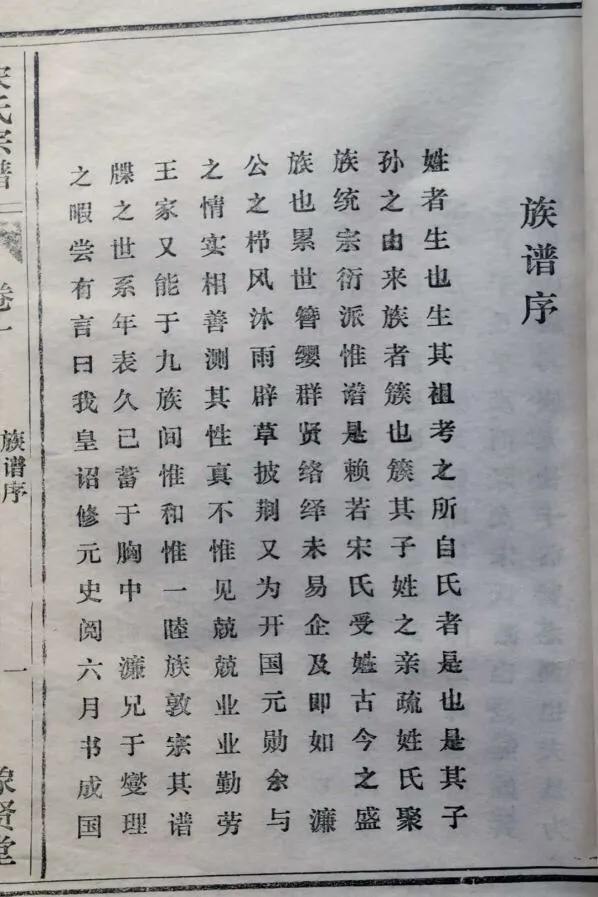 族谱序
姓者生也生其祖考之所自氏者是也是其子
孙之由来族者簇也簇其子姓之亲疏姓氏聚
族统宗衍派惟谱是赖若宋氏受姓古今之盛
族也累世簪缨群贤络绎未易企及即如 濂
公之栉风沐雨辟草披荆又为开国元勋余与
之情实相善测其性真不惟见兢兢业业勤劳
王家又能于九族间惟和惟一睦族敦宗其谱
牒之世系年表久已蓄于胸中 濂兄于燮理
之暇尝有言曰我皇诏修元史阅六月书成国
宋氏宗谱
卷一
族谱序
一
象贤堂